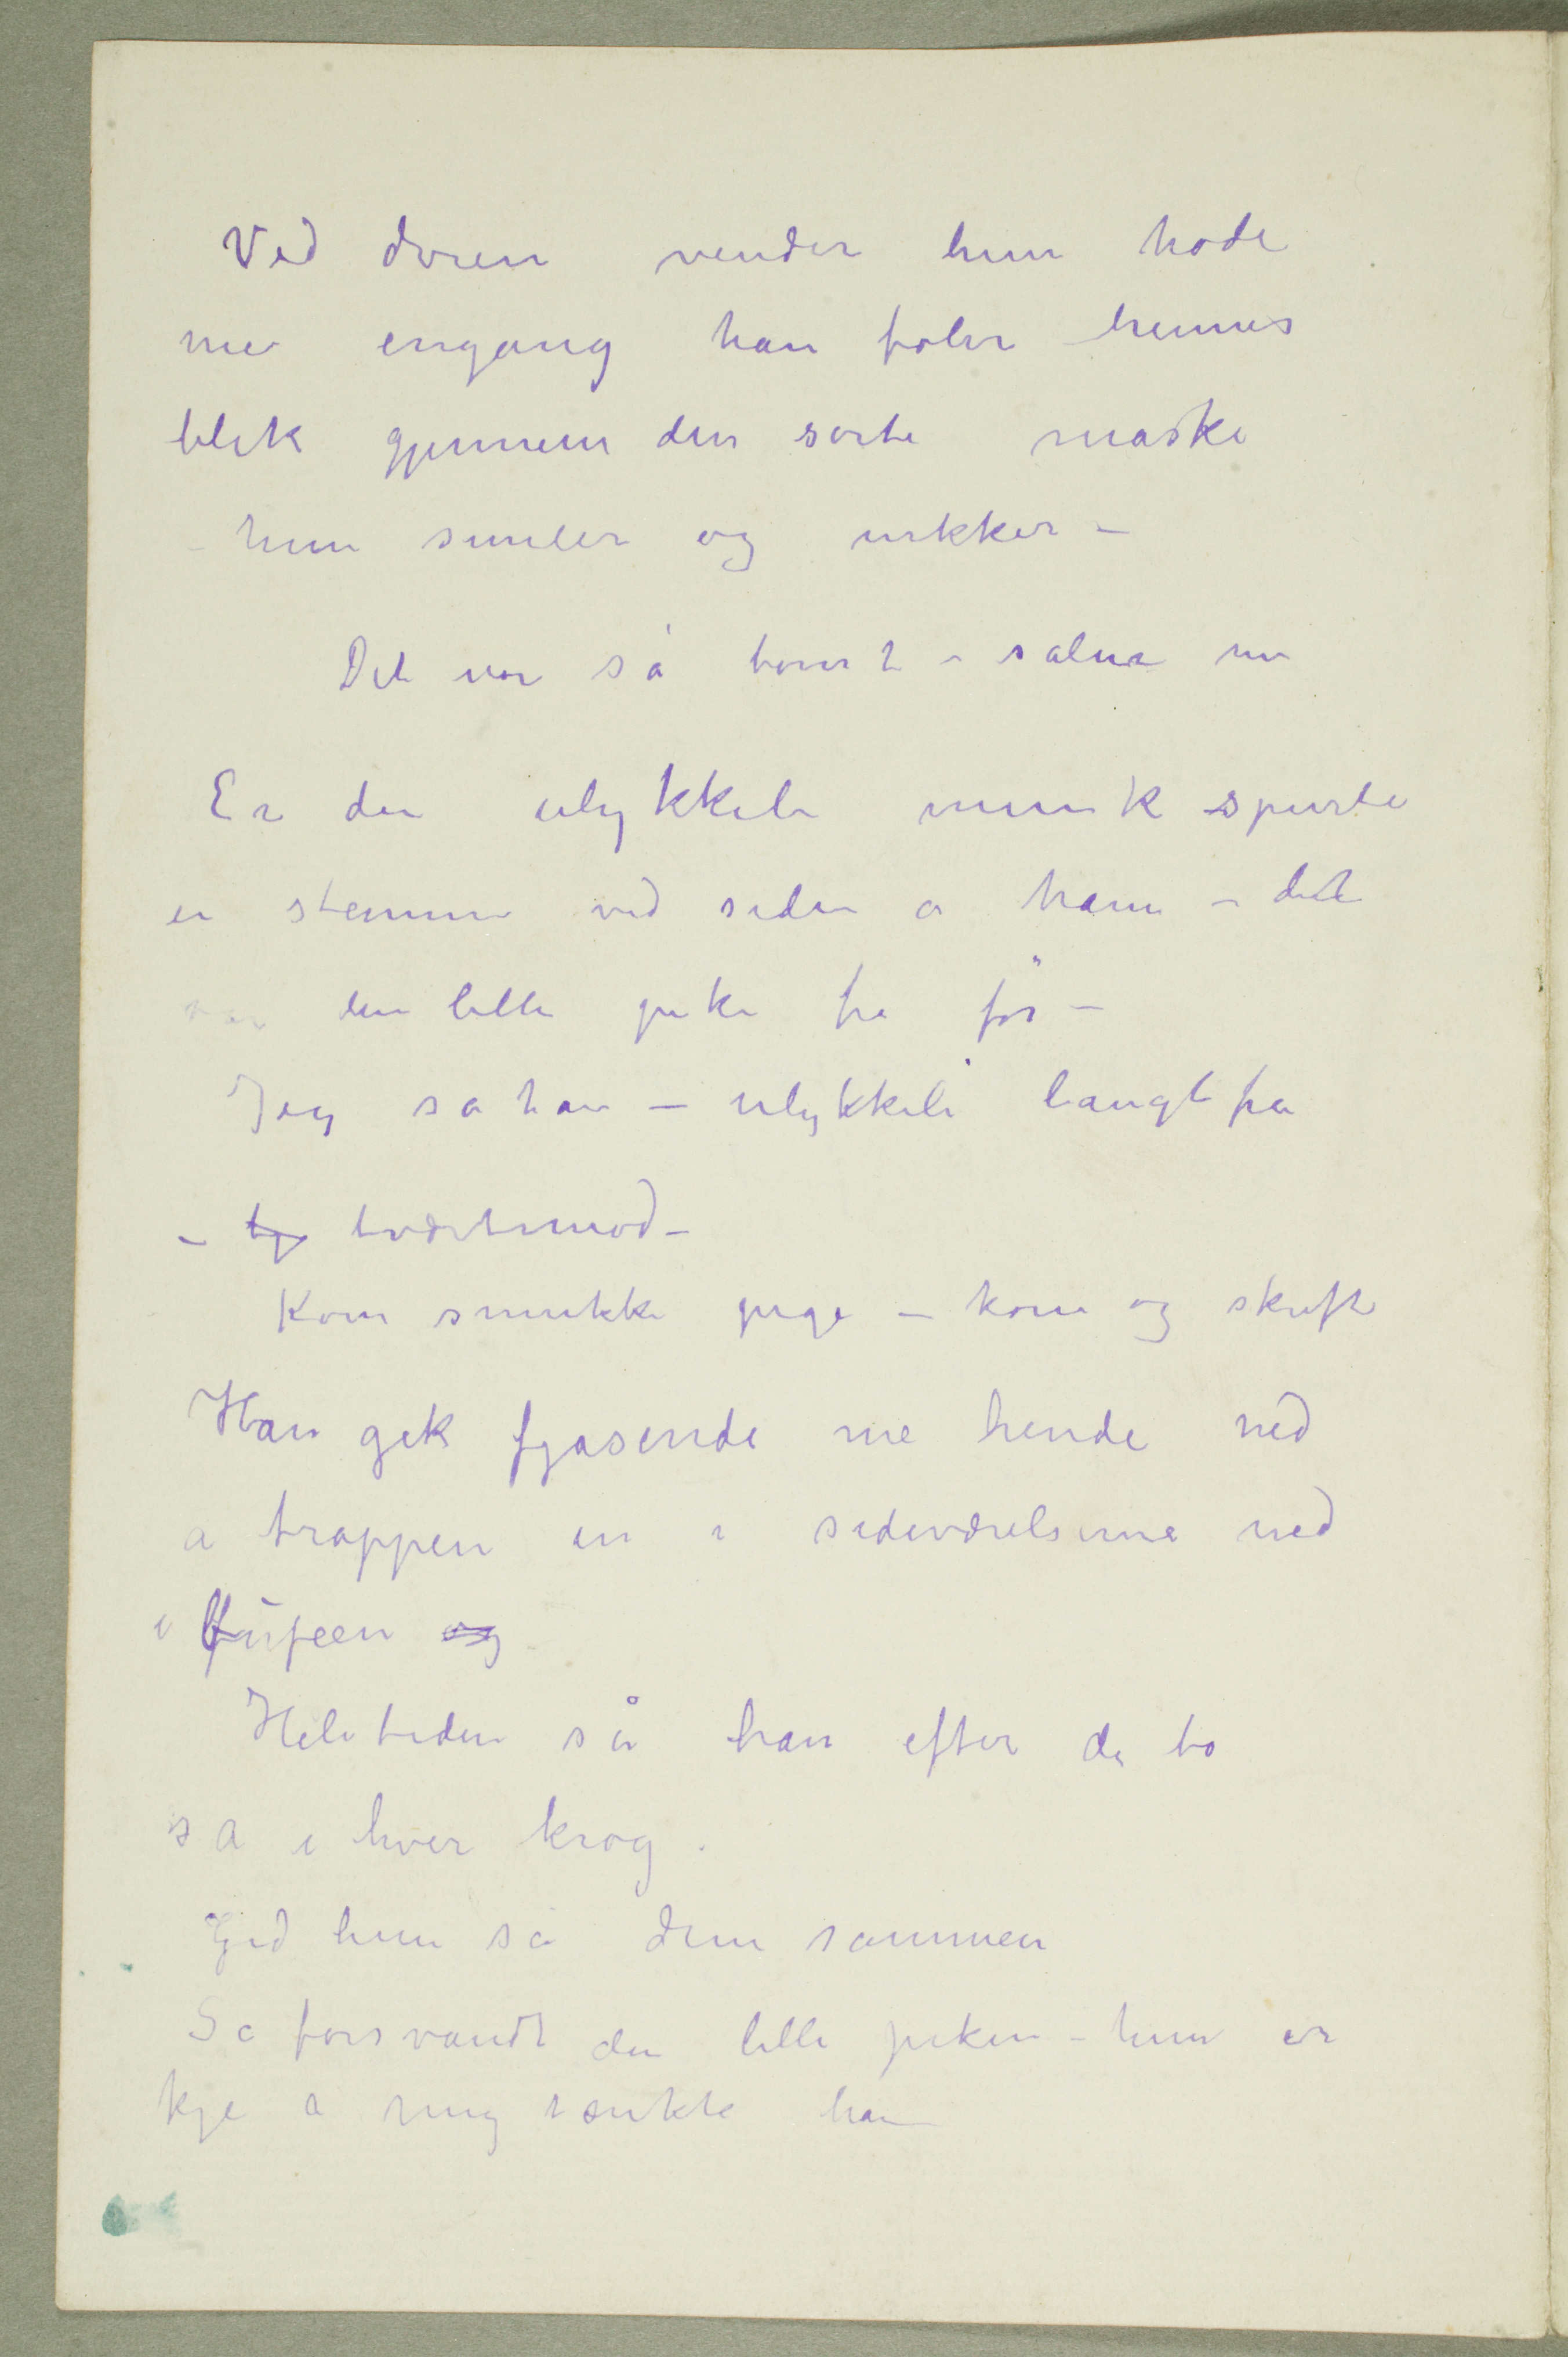 Ved døren vender hun hode
me engang han føler hennes
blik gjennem den sorte maske
– hun smiler og nikker –
Det var så tomt – salen nu
Er du ulykkeli munk spurte
en stemme ved siden a ham – det
var den lille pike fra för –
Jeg sa han – ulykkeli langt fra
– tværtimod –
Kom smukke pige – kom og skrift
Han gik fjasende me hende ned
a trappen in i sideværelserne ned
i buffeen og
Hele tiden så han efter de to
sa i hver krog.
Gid hun så dem sammen
Så forsvandt den lille piken – hun er
kje a mig tænkte han